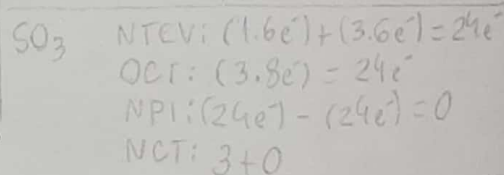 SO₃ NTEV: (1.6e⁻)+(3.6e⁻)=24e⁻
OCT: (3.8e⁻) = 24e⁻
NPI:(24e⁻) - (24e⁻)=0
NCT: 3+0